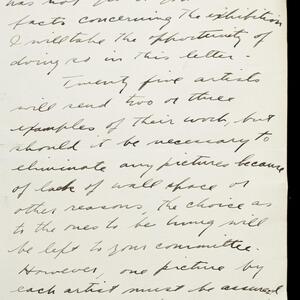 has not
facts concerning the exhibition
I will take the opportunity of
doing so in this letter.
Twenty five artists
will send two or three
examples of their work, but
should it be necessary to
eliminate any pictures because
of lack of wall space or
other reasons, the choice as
to the ones to be hung will
be left to your committee.
However, one picture by
each artist must be assured